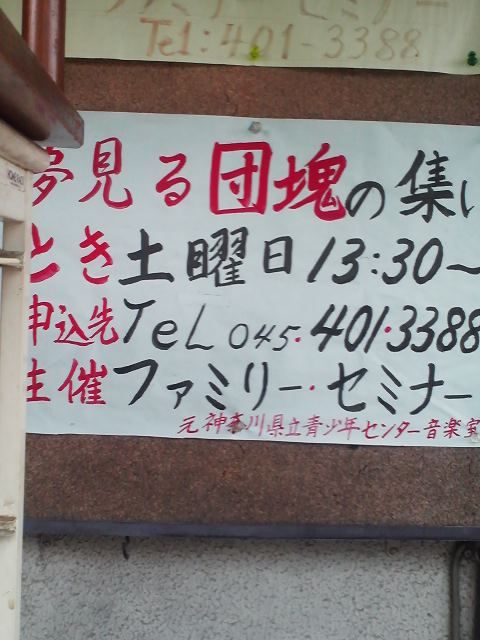 ファミリーセミナー
Tel:401-3388
夢見る団塊の集い
とき土曜日13:30〜
申込先TeL 045・401・3388
主催ファミリー・セミナー
元神奈川県立青少年センター音楽室